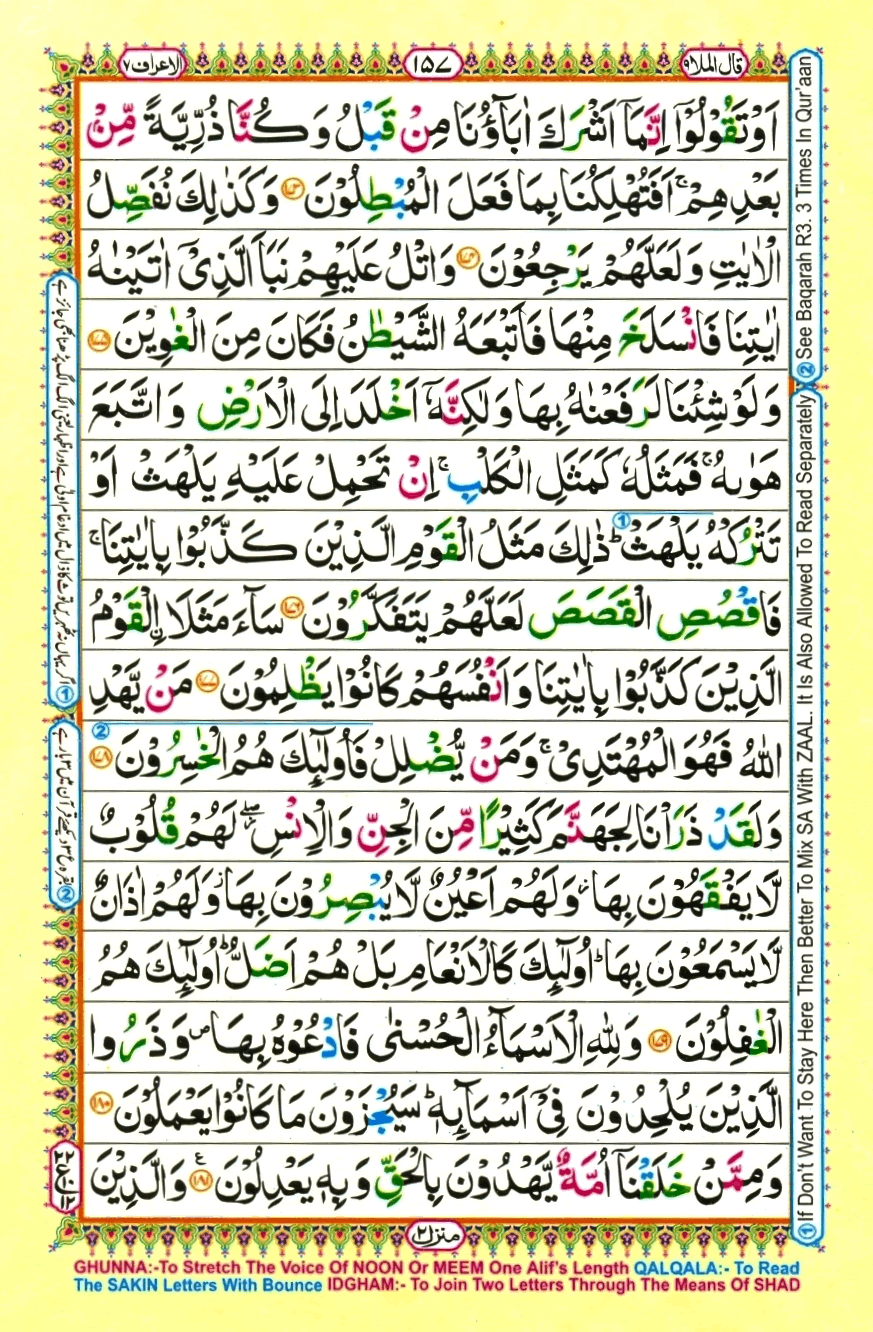 الاعراف ٧
١٥٧
قال الملا ٩
اَوْ تَقُوْلُوْۤا اِنَّمَاۤ اَشْرَكَ اٰبَآؤُنَا مِنْ قَبْلُ وَ كُنَّا ذُرِّيَّةً مِّنْۢ
بَعْدِهِمْ ۚ اَفَتُهْلِكُنَا بِمَا فَعَلَ الْمُبْطِلُوْنَ ١٧٣ وَ كَذٰلِكَ نُفَصِّلُ
الْاٰيٰتِ وَ لَعَلَّهُمْ يَرْجِعُوْنَ ١٧٤ وَ اتْلُ عَلَيْهِمْ نَبَاَ الَّذِيْۤ اٰتَيْنٰهُ
اٰيٰتِنَا فَانْسَلَخَ مِنْهَا فَاَتْبَعَهُ الشَّيْطٰنُ فَكَانَ مِنَ الْغٰوِيْنَ ١٧٥
وَ لَوْ شِئْنَا لَرَفَعْنٰهُ بِهَا وَ لٰكِنَّهٗۤ اَخْلَدَ اِلَى الْاَرْضِ وَ اتَّبَعَ
هَوٰىهُ ۚ فَمَثَلُهٗ كَمَثَلِ الْكَلْبِ ۚ اِنْ تَحْمِلْ عَلَيْهِ يَلْهَثْ اَوْ
تَتْرُكْهُ يَلْهَثْ ؕ ① ذٰلِكَ مَثَلُ الْقَوْمِ الَّذِيْنَ كَذَّبُوْا بِاٰيٰتِنَا ۚ
فَاقْصُصِ الْقَصَصَ لَعَلَّهُمْ يَتَفَكَّرُوْنَ ١٧٦ سَآءَ مَثَلَا ۟اِ۟لْقَوْمُ
الَّذِيْنَ كَذَّبُوْا بِاٰيٰتِنَا وَ اَنْفُسَهُمْ كَانُوْا يَظْلِمُوْنَ ١٧٧ مَنْ يَّهْدِ
اللّٰهُ فَهُوَ الْمُهْتَدِيْ ۚ وَ مَنْ يُّضْلِلْ فَاُولٰٓىِٕكَ هُمُ الْخٰسِرُوْنَ ١٧٨ ②
وَ لَقَدْ ذَرَاْنَا لِجَهَنَّمَ كَثِيْرًا مِّنَ الْجِنِّ وَ الْاِنْسِ ۖ لَهُمْ قُلُوْبٌ
لَّا يَفْقَهُوْنَ بِهَا ؗ وَ لَهُمْ اَعْيُنٌ لَّا يُبْصِرُوْنَ بِهَا ؗ وَ لَهُمْ اٰذَانٌ
لَّا يَسْمَعُوْنَ بِهَا ؕ اُولٰٓىِٕكَ كَالْاَنْعَامِ بَلْ هُمْ اَضَلُّ ؕ اُولٰٓىِٕكَ هُمُ
الْغٰفِلُوْنَ ١٧٩ وَ لِلّٰهِ الْاَسْمَآءُ الْحُسْنٰى فَادْعُوْهُ بِهَا ۪ وَ ذَرُوا
الَّذِيْنَ يُلْحِدُوْنَ فِيْۤ اَسْمَآىِٕهٖ ؕ سَيُجْزَوْنَ مَا كَانُوْا يَعْمَلُوْنَ ١٨٠
وَ مِمَّنْ خَلَقْنَاۤ اُمَّةٌ يَّهْدُوْنَ بِالْحَقِّ وَ بِهٖ يَعْدِلُوْنَ ١٨١ ع وَ الَّذِيْنَ
منزل ٢
① If Don't Want To Stay Here Then Better To Mix SA With ZAAL. It Is Also Allowed To Read Separately
② See Baqarah R3. 3 Times In Qur'aan
GHUNNA:-To Stretch The Voice Of NOON Or MEEM One Alif's Length QALQALA:- To Read
The SAKIN Letters With Bounce IDGHAM:- To Join Two Letters Through The Means Of SHAD